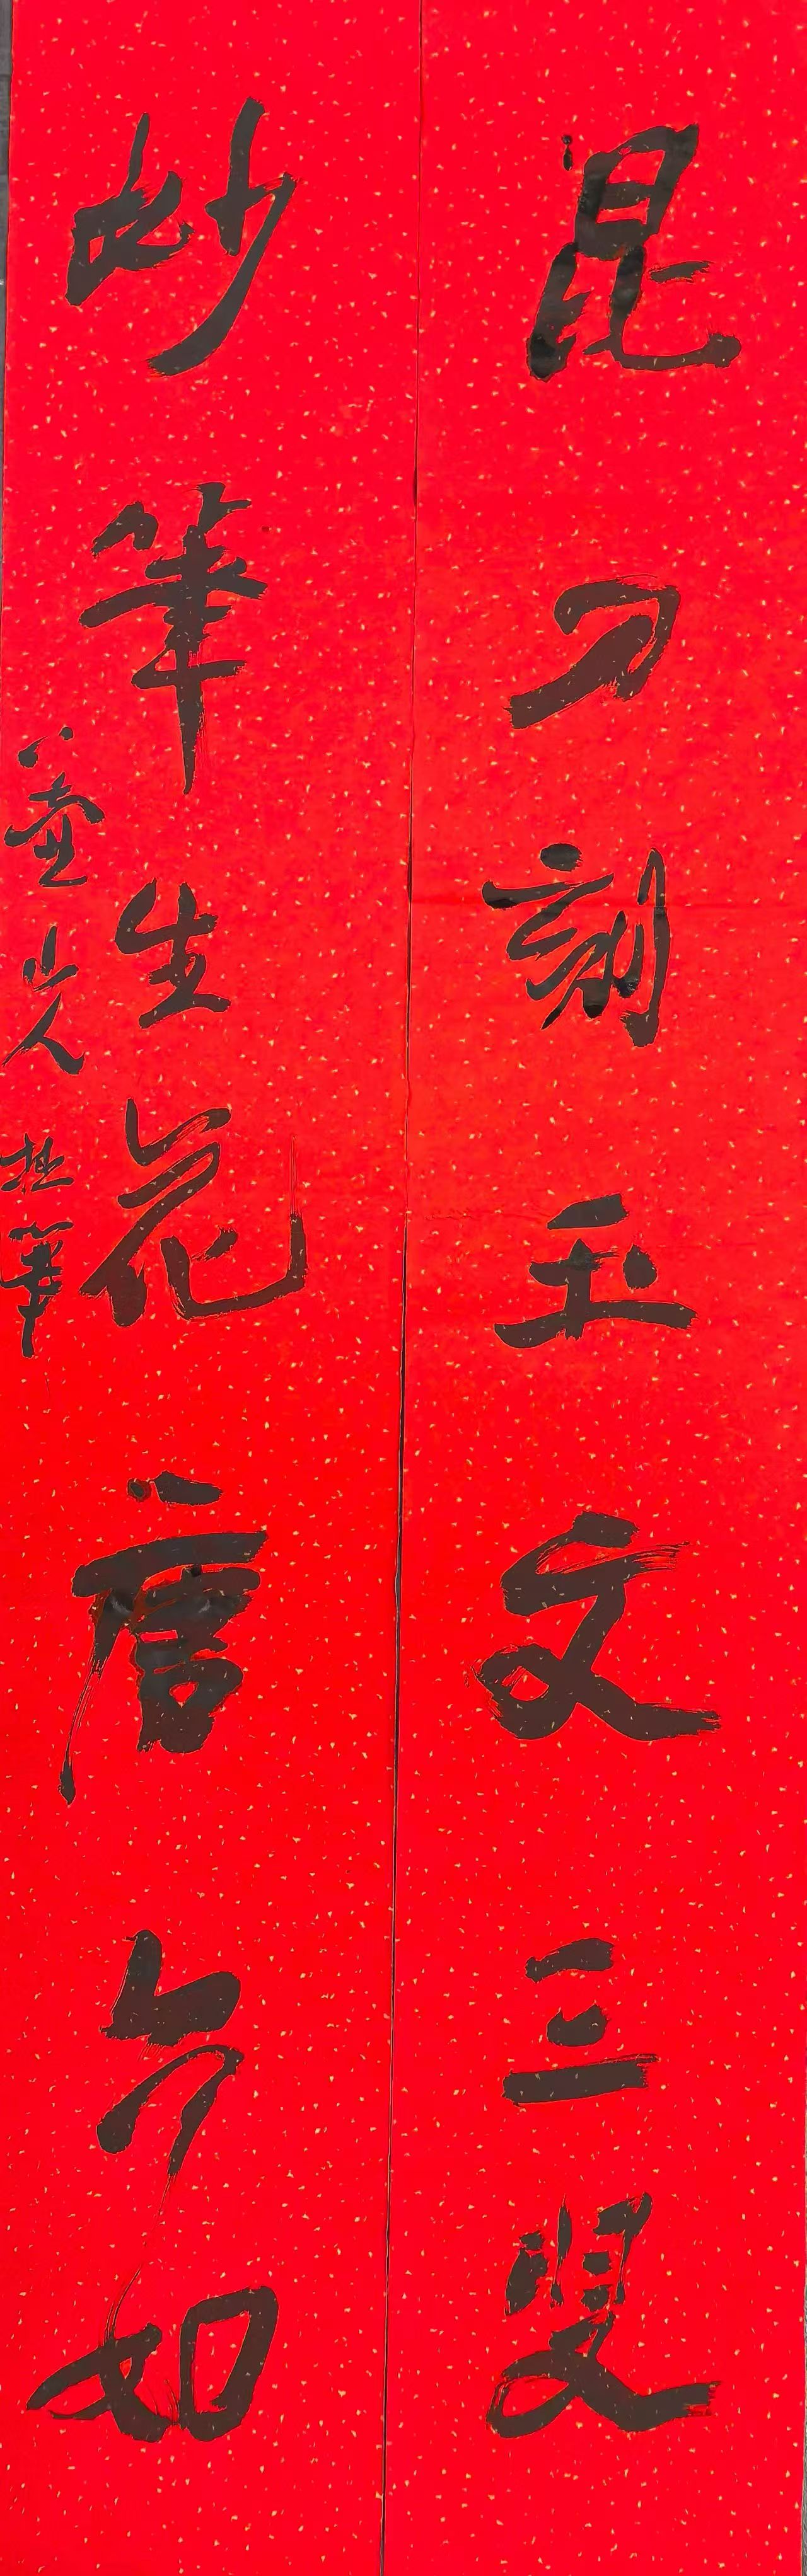 昆刀刻玉文三叟
妙筆生花唐六如
八壶山人拙筆